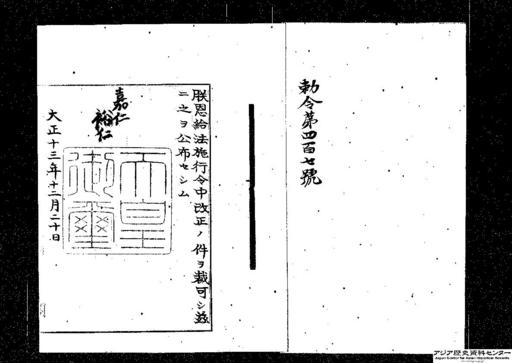 勅令第四百七號
朕恩給法施行令中改正ノ件ヲ裁可シ玆
ニ之ヲ公布セシム
嘉仁
裕仁
天皇
御璽
大正十三年十二月二十日
アジア歴史資料センター
Japan Center for Asian Historical Records